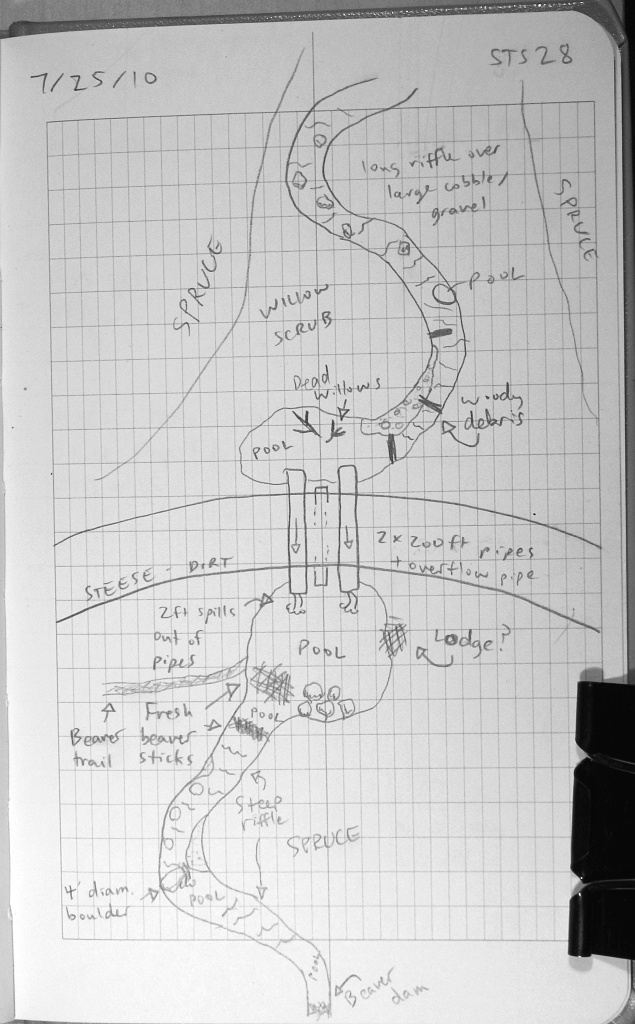 7/25/10
STS 28
long riffle over
large cobble/
gravel
SPRUCE
SPRUCE
POOL
WILLOW
SCRUB
Dead
willows
woody
debris
POOL
2 x 200ft pipes
+ overflow pipe
STEESE - DIRT
2ft spills
out of
pipes
POOL
Lodge?
Beaver
trail
Fresh
beaver
sticks
POOL
Steep
riffle
SPRUCE
4' diam.
boulder
POOL
POOL
Beaver
dam